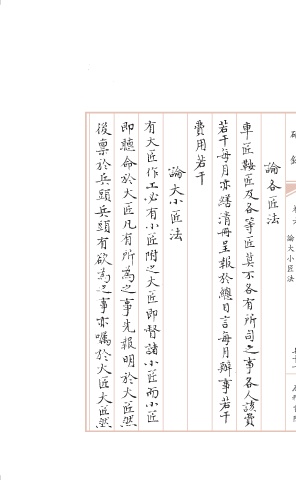 論各匠法
車匠鞍匠及各等匠莫不各有所司之事各人該費
若干每月亦繕清冊呈報於總目言每月辦事若干
費用若干
論大小匠法
有大匠作工必有小匠附之大匠即督諸小匠而小匠
即聽命於大匠凡有所為之事先報明於大匠然
後稟於兵頭兵頭有欲為之事亦囑於大匠大匠然
論大小匠法